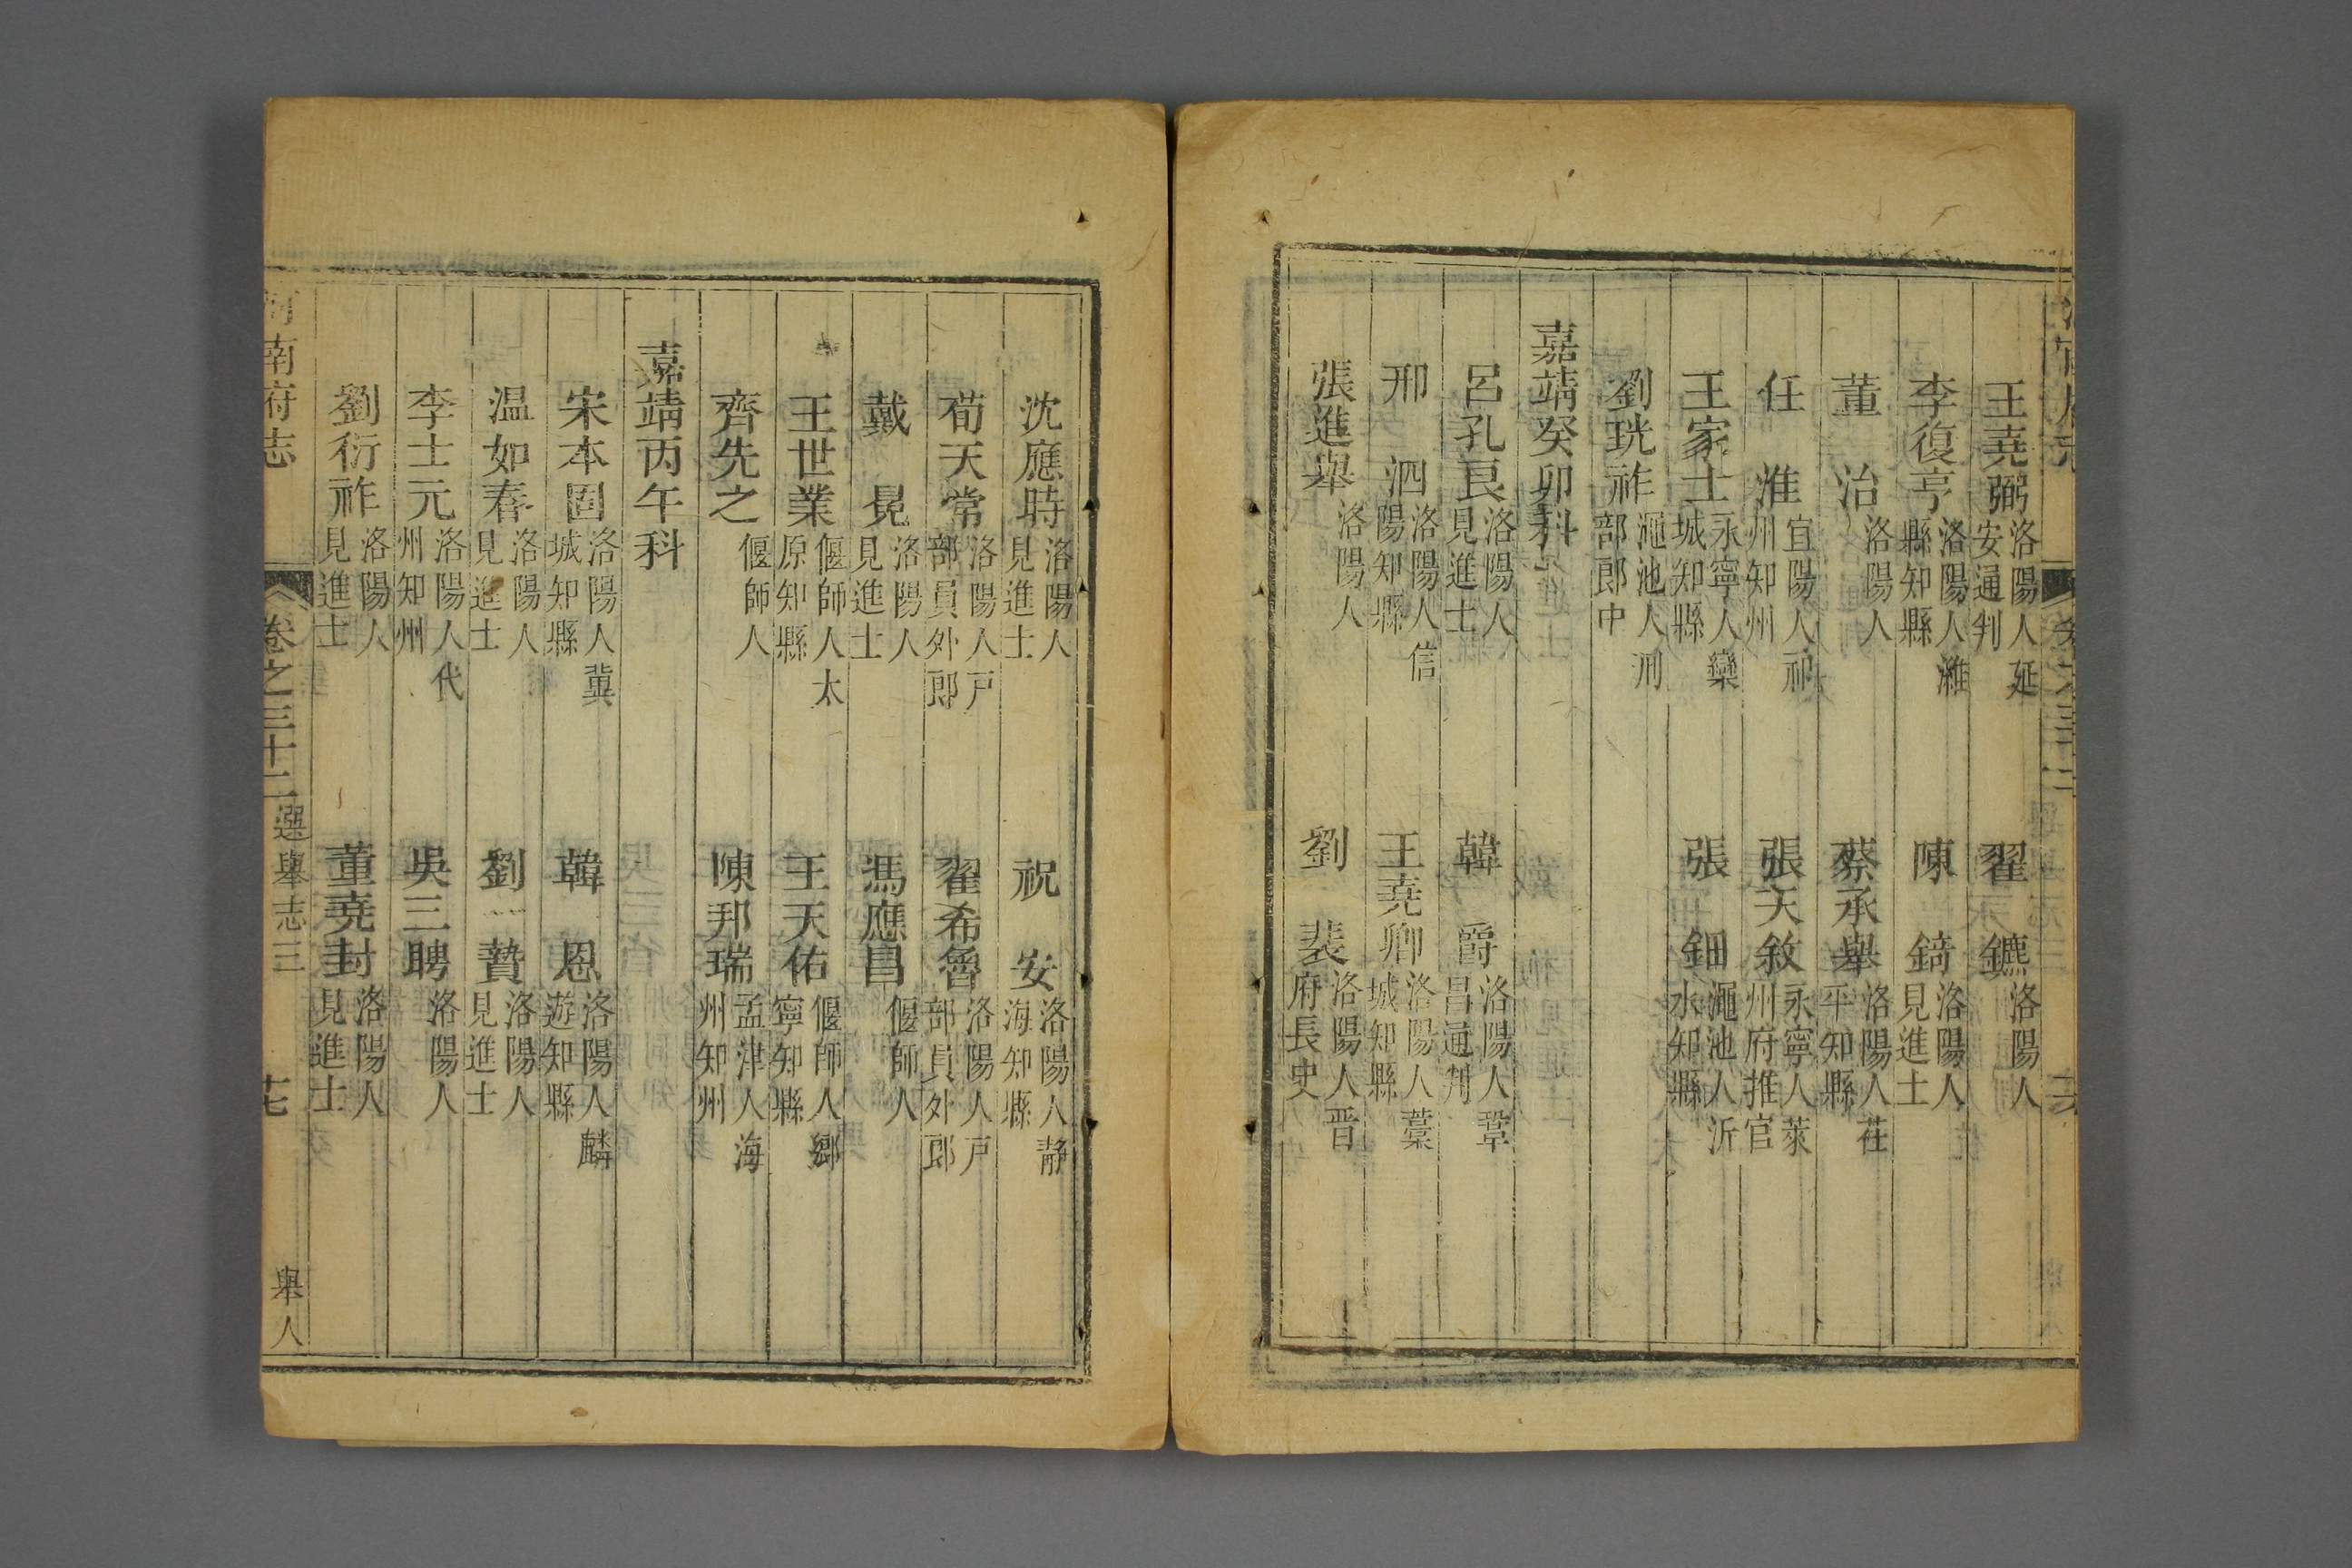 王堯弼洛陽人延安通判 翟鑣洛陽人
李復亨洛陽人濰縣知縣 陳錡洛陽人見進士
董治洛陽人 蔡承舉洛陽人茌平知縣
任淮宜陽人祁州知州 張天敘永寧人萊州府推官
王家士永寧人欒城知縣 張鈿澠池人沂水知縣
劉珖祚澠池人刑部郎中
嘉靖癸卯科
呂孔良洛陽人見進士 韓爵洛陽人鞏昌通判
邢泗洛陽人信陽知縣 王堯卿洛陽人藁城知縣
張進舉洛陽人 劉裴洛陽人晋府長史
沈應時洛陽人見進士 祝安洛陽人靜海知縣
荀天常洛陽人戸部員外郎 翟希魯洛陽人戸部員外郎
戴晃洛陽人見進士 馮應昌偃師人
王世業偃師人太原知縣 王天佑偃師人鄉寧知縣
齊先之偃師人 陳邦瑞孟津人海州知州
嘉靖丙午科
宋本固洛陽人冀城知縣 韓恩洛陽人麟遊知縣
温如春洛陽人見進士 劉贄洛陽人見進士
李士元洛陽人代州知州 吳三聘洛陽人
劉衍祚洛陽人見進士 董堯封洛陽人見進士
河南府志 卷之三十二 選舉志三 舉人